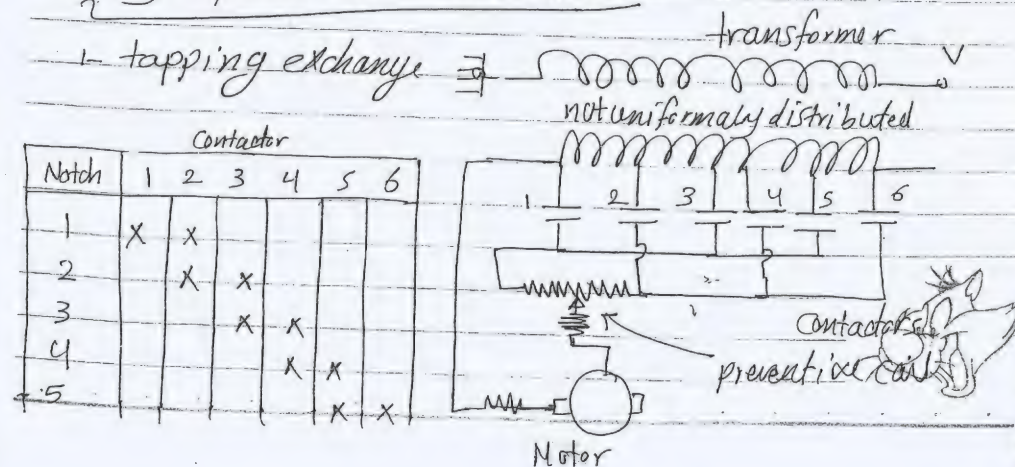 1- tapping exchange
transformer
V
not uniformaly distributed
Contactor
Notch 1 2 3 4 5 6
1 X X
2 X X
3 X X
4 X X
5 X X
1 2 3 4 5 6
Contactor
preventive coil
Motor